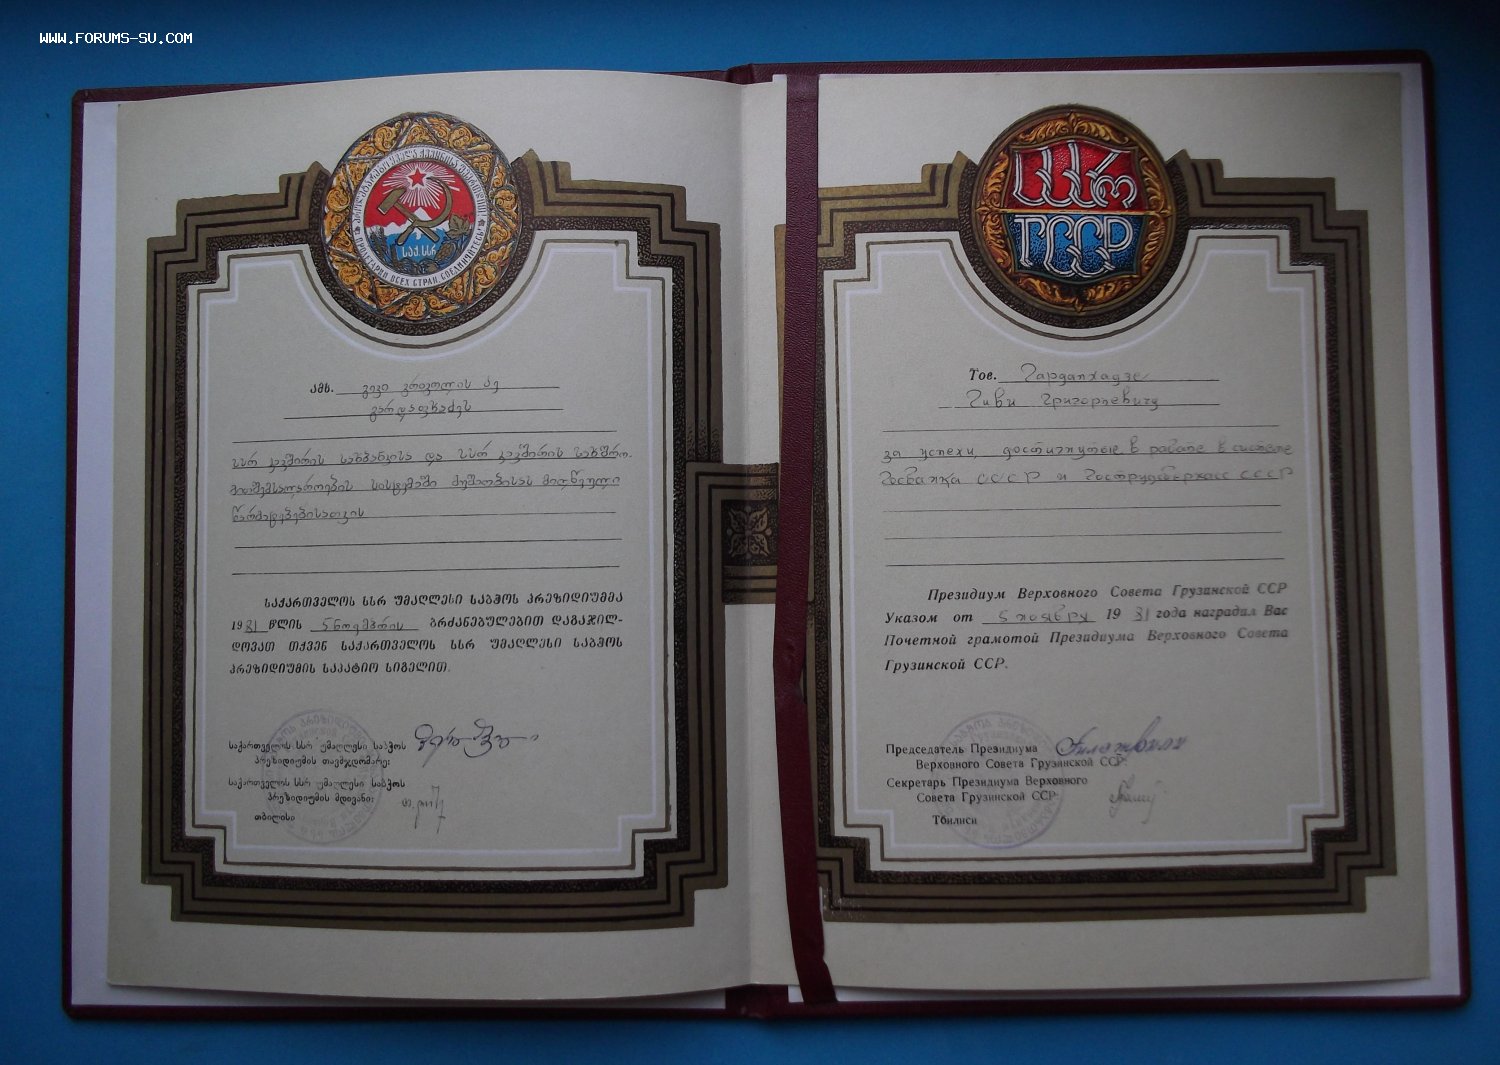 WWW.FORUMS-SU.COM
ПРОЛЕТАРИИ ВСЕХ СТРАН, СОЕДИНЯЙТЕСЬ!
საქ. სსრ
ამხ. გივი გრიგოლის ძე
გარდაფხაძეს
სსრ კავშირის სახბანკისა და სსრ კავშირის სახშრო-
სისტემაში მუშაობისას მიღწეული
წარმატებებისათვის
საქართველოს სსრ უმაღლესი საბჭოს პრეზიდიუმმა
1981 წლის 5 ნოემბრის ბრძანებულებით დაგაჯილ-
დოვათ თქვენ საქართველოს სსრ უმაღლესი საბჭოს
პრეზიდიუმის საპატიო სიგელით.
საქართველოს სსრ უმაღლესი საბჭოს
პრეზიდიუმის თავმჯდომარე:
საქართველოს სსრ უმაღლესი საბჭოს
პრეზიდიუმის მდივანი:
თბილისი
სსრ
ГССР
Тов. Гардапхадзе
Гиви Григорьевич
за успехи, достигнутые в работе в системе
Госбанка СССР и Гострудсберкасс СССР
Президиум Верховного Совета Грузинской ССР
Указом от 5 ноября 1981 года наградил Вас
Почетной грамотой Президиума Верховного Совета
Грузинской ССР.
Председатель Президиума
Верховного Совета Грузинской ССР:
Секретарь Президиума Верховного
Совета Грузинской ССР:
Тбилиси